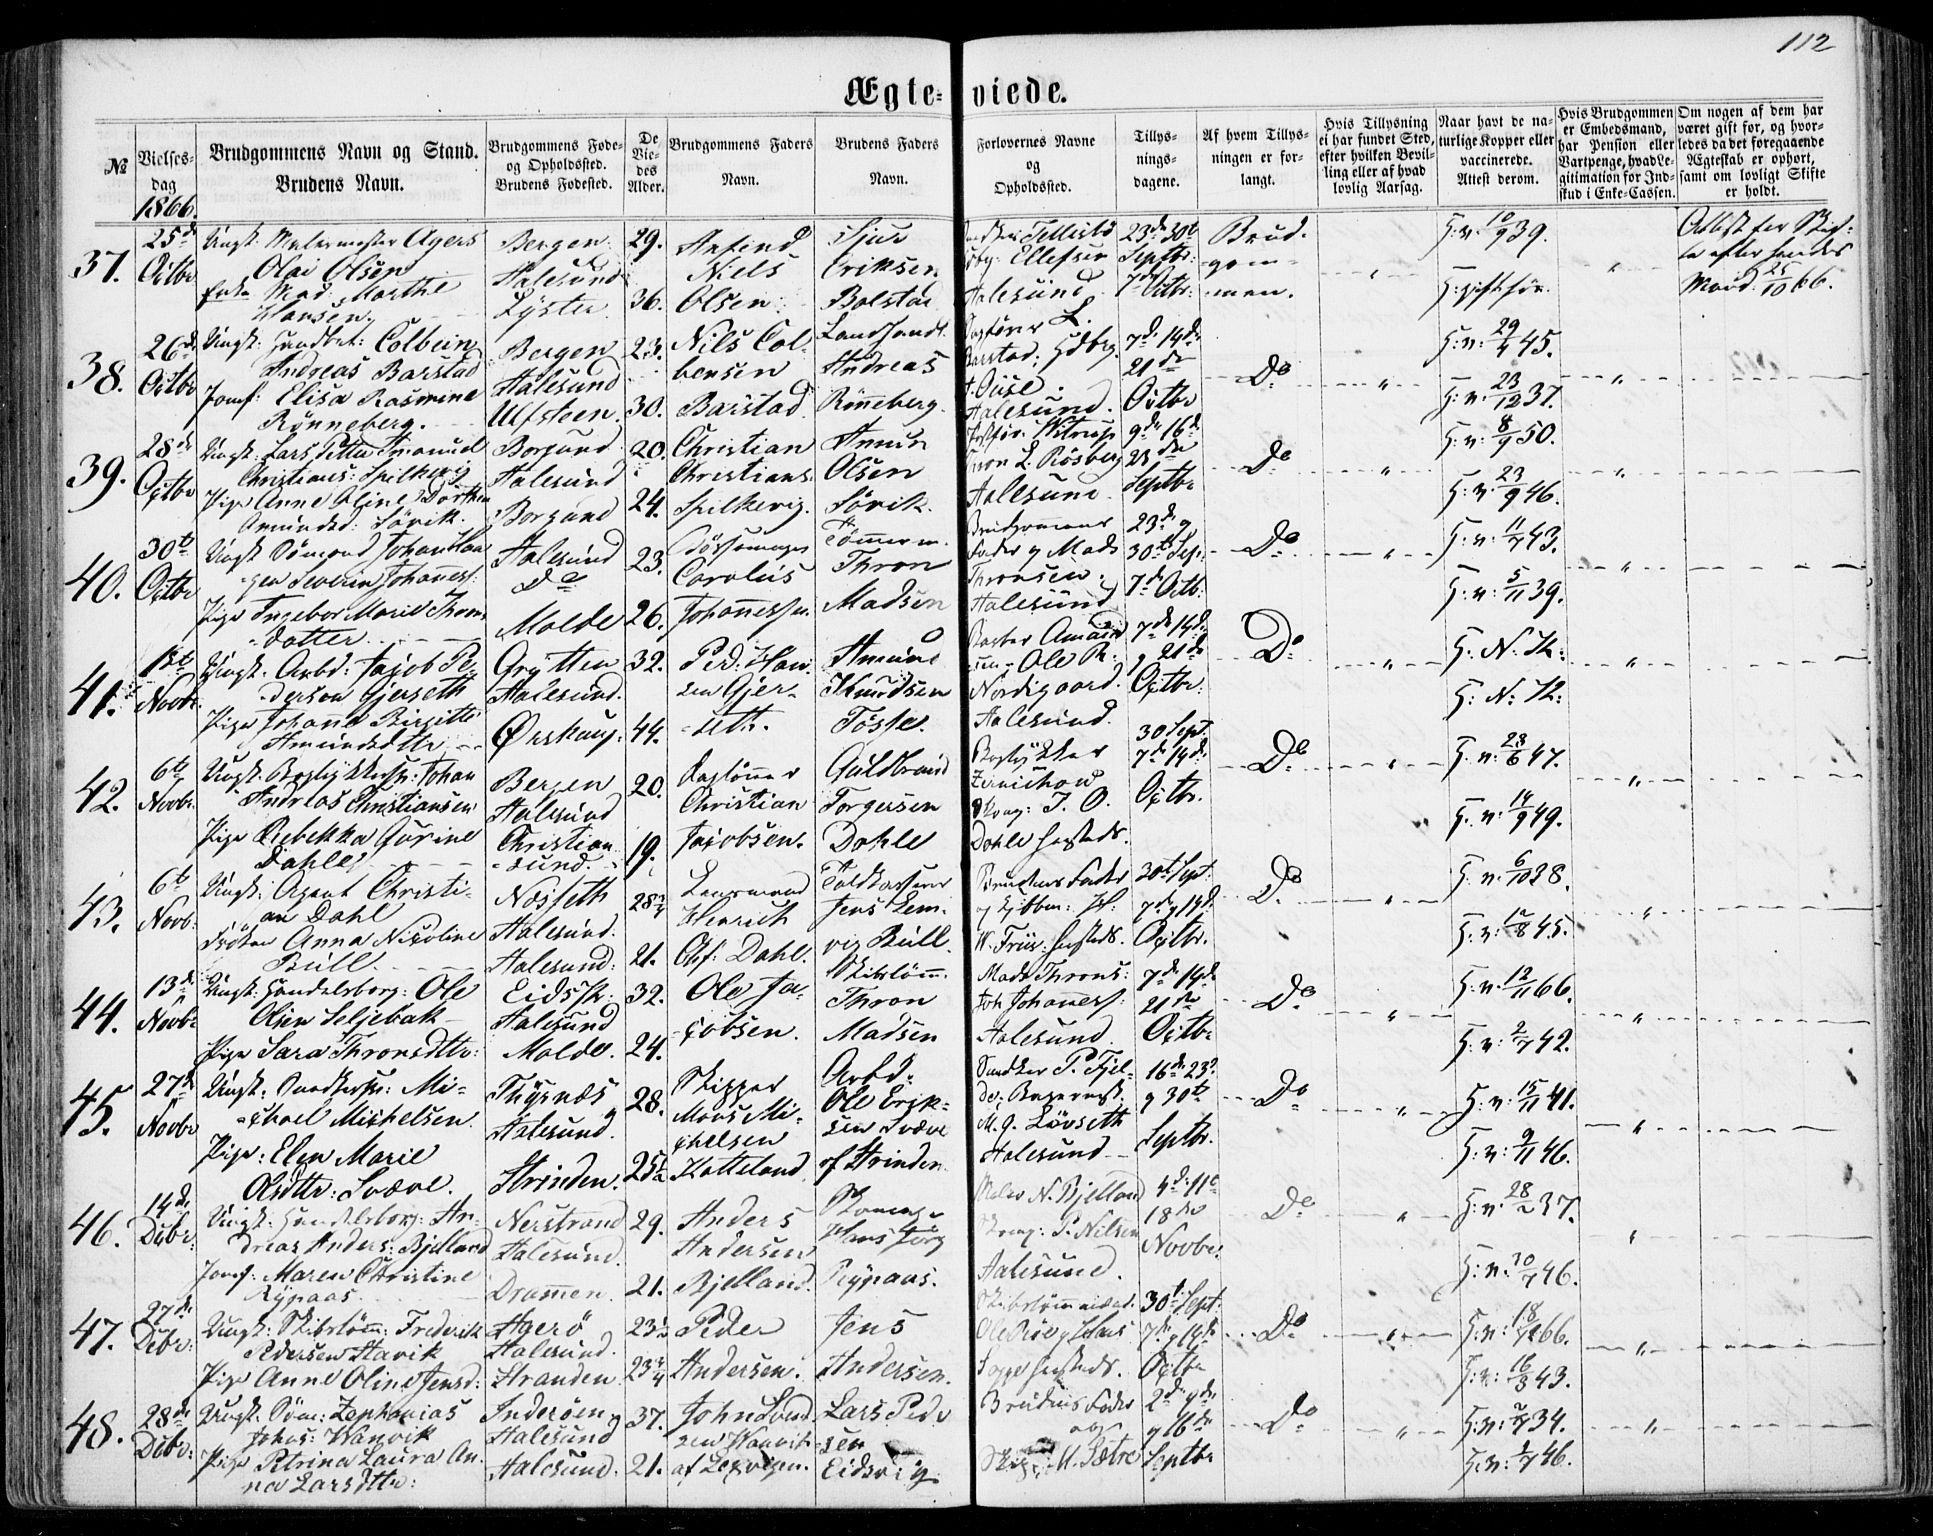 112
Ægte-
viede.
№
Vielses-
dag
1866.
Brudgommens Navn og Stand.
Brudens Navn.
Brudgommens Føde-
og Opholdssted.
Brudens Fødested.
De
Vie-
des
Alder.
Brudgommens Faders
Navn.
Brudens Faders
Navn.
Forlovernes Navne
og
Opholdssted.
Tillys-
nings-
dagene.
Af hvem Tillys-
ningen er for-
langt.
Hvis Tillysning
ei har fundet Sted,
efter hvilken Bevil-
ling eller af hvad
lovlig Aarsag.
Naar havt de na-
turlige Kopper eller
vaccinerede.
Attest derom.
Hvis Brudgommen
er Embedsmand,
har Pension eller
Vartpenge, hvad Le-
gitimation for Ind-
skud i Enke-Cassen.
Om nogen af dem har
været gift før, og hvor-
ledes da det foregaaende
Ægteskab er ophørt,
samt om lovligt Skifte
er holdt.
37.
25de
Octbr
Ungk: Malermester Agers
Olai Olsen
Enke Mad: Marthe
Hansen.
Bergen.
Aalesund
Lyster
29.
36.
Anfind
Niels
Olsen
Sjur
Eriksen
Bolstad
Tellild
Ellefsen
Aalesund
23de 30te
Septbr:
7de Octbr:
Brud-
gom-
men.
"
h: v. 10/9 39.
h: gift før.
"
Attest for Skif-
te efter hendes
Mand 25/10 66.
38.
26de
Octbr
Ungk: Handbet: Colbein
Andreas Barstad
Jomf: Elisa Rasmine
Rønneberg.
Bergen
Aalesund
Ulfsteen
23.
30.
Nils Col-
bensen
Barstad
Landhandl.
Andreas
Rønneberg.
L.
Barstad: Hdbg.
Aalesund.
7de 14de
21de
Octbr
Do
"
h: v: 29/4 45.
h: v: 23/12 37.
"
39.
28de
Octbr
Ungk: Lars Petter Imanuel
Christians: Spilkevig
Pige Anne Oline Dorthea
Amundsd: Sørvik.
Borgund
Aalesund
Borgund
20.
24.
Christian
Christians:
Spilkevig.
Amun
Olsen
Sørvik.
Witrup
Thron L. Røsberg
Aalesund.
9de 16de
23de
Septbr
Do
"
h: v: 8/9 50.
h: v. 23/9 46.
"
40.
30te
Octbr
Ungk: Sømand Johan Haa-
gen Severin Johanness:
Pige Ingebor Marie Throns-
datter
Aalesund
Do
Molde
23.
26.
Carolus
Johannessen
Tømmerm.
Thron
Madsen
Brudgommens
Fader og Mads
Thronsen.
Aalesund
23de og
30te Sep:
7de Octb:
Do
"
h: v: 11/7 43.
h: v: 5/11 39.
"
41.
1ste
Novbr.
Ungk: Arbd: Jacob Pe-
dersen Gjerseth
Pige Johanne Birgitte
Amundsdtter
Grytten
Aalesund.
Ørskoug.
32.
44.
Ped: Han-
sen Gjer-
seth.
Amund
Knudsen
Tøsse.
Amund-
sen - Ole R.
Nordigaard.
Aalesund.
7de 14de
og 21de
Octbr.
Do
"
h: N. K:
h: N: K:
"
42.
6te
Novbr.
Ungk: Bogtrykkersv: Johan
Andreas Christiansen
Pige Rebekka Gurine
Dahle
Bergen
Aalesund
Christian-
sund.
20.
19.
Christian
Jacobsen.
Guldbrand
Torgersen
Dahle
Bogtrykker
Zernichow
Skomg: T. O.
Dahle hersteds.
30 Sept.
7de 14de
Octbr.
Do
"
h: v: 28/6 47.
h: v: 14/9 49.
"
43.
6te
Novb:
Ungk: Agent Christi-
an Dahl
Frøken Anna Nicoline
Bull.
Næsseth
Aalesund.
Aalesund:
28 3/4
21.
Lensmand
Henrich
Chf: Dahl.
Toldkasserer
Jens Lem-
vig Bull.
Brudens Fader
og Kjøbm: H:
W. Friis: hersteds.
30te Sept:
7de og 14de
Octbr.
Do
"
h: v. 6/10 28.
h: v: 12/8 45.
"
44.
13de
Novbr
Ungk: Handelsborg: Ole
Olsen Seljebak
Pige Sara Thronsdtr:
Eids Sk.
Aalesund
Molde.
32.
24.
Ole Ja-
cobsen.
Skibstøm:
Thron
Madsen
Mads Throns:
Joh Johanness:
Aalesund.
7de 14de
21de
Octbr
Do
"
h: v. 12/11 66.
h: v: 2/7 42.
"
45.
27de
Novbr
Ungk: Snedkersv: Mi-
chael Mickelsen.
Pige: Elen Marie
Olsdtr: Svæve.
Thysnæs
Aalesund.
Strinden.
28.
25 1/2
Skipper
Mons Mi-
chelsen
Hatteland
Arbd:
Ole Erik-
sen Svæve
af Strinden
Snedker P. Fjel-
de,
M. G. Løvseth
Aalesund
16de 23de
og 30te
Septbr.
Do
"
h: v: 15/11 41.
h: v: 9/11 46.
"
46.
14de
Decbr:
Ungk: Handelsborg: An-
dreas Anders: Bjelland
Jomf: Maren Christine
Rypaas
Nerstrand
Aalesund.
Drammen.
29.
21.
Anders
Andersen
Bjelland.
Skomag.
Hans Jørg
Rypaas.
Maler N. Bjelland
Skomg: P. Nilsen
Aalesund.
4de 11te
18de
Novbr.
Do
"
h: v. 28/2 37.
h: v: 20/7 46.
"
47.
27de
Decbr:
Ungk: Skibstømm: Frederik
Pedersen Havik
Pige Anne Oline Jensd:
Agerø
Aalesund.
Stranden
23 1/2
23 3/4
Peder
Andersen.
Jens
Andersen.
Skibstømmermd.
Ole Røe og Hans
hersteds.
30te Sept:
7de og 14de
Octbr
Do
"
h: v: 18/12 66.
h: v: 16/8 43.
"
48.
28de
Decbr:
Ungk: Søm: Zephanias
Johns: Wanvik
Pige Petrine Laura An-
na Larsdtr:
Inderøen
Aalesund
Aalesund.
37.
21.
John Svend-
sen Wanvik
af Lexvigen.
Lars Peder-
sen
Eidsvig
Brudens Fader
og
M. Sætre
2de 9de
og 16de
Septbr
Do
"
h: v: 2/7 34.
h: v: 1/7 46.
"